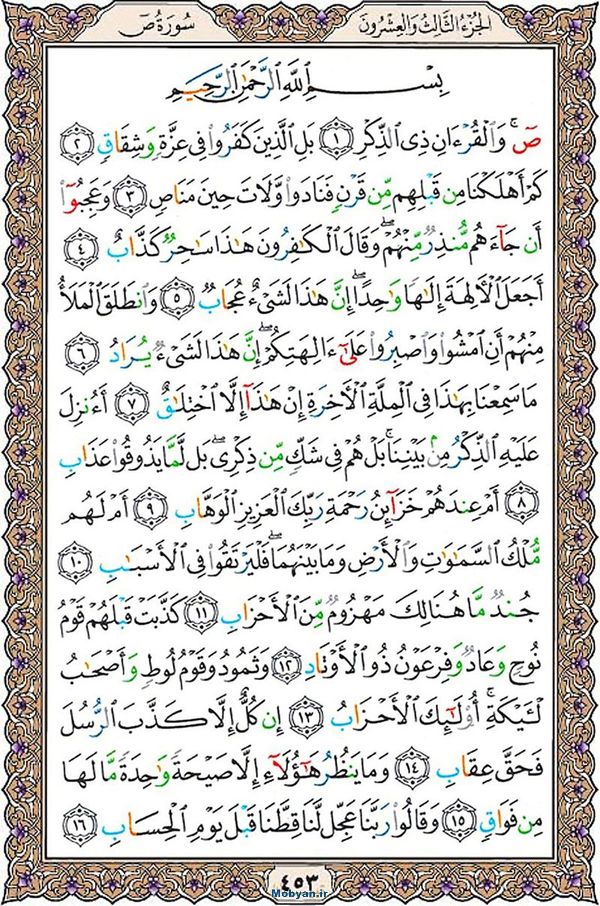 الجُزءُ الثَّالِثُ وَالعِشرُونَ سُورَةُ صٓ
بِسْمِ ٱللَّهِ ٱلرَّحْمَٰنِ ٱلرَّحِيمِ
صٓ ۚ وَٱلْقُرْءَانِ ذِى ٱلذِّكْرِ ١ بَلِ ٱلَّذِينَ كَفَرُوا۟ فِى عِزَّةٍ وَشِقَاقٍ ٢
كَمْ أَهْلَكْنَا مِن قَبْلِهِم مِّن قَرْنٍ فَنَادَوا۟ وَّلَاتَ حِينَ مَنَاصٍ ٣ وَعَجِبُوٓا۟
أَن جَآءَهُم مُّنذِرٌ مِّنْهُمْ ۖ وَقَالَ ٱلْكَٰفِرُونَ هَٰذَا سَٰحِرٌ كَذَّابٌ ٤
أَجَعَلَ ٱلْءَالِهَةَ إِلَٰهًا وَٰحِدًا ۖ إِنَّ هَٰذَا لَشَىْءٌ عُجَابٌ ٥ وَٱنطَلَقَ ٱلْمَلَأُ
مِنْهُمْ أَنِ ٱمْشُوا۟ وَٱصْبِرُوا۟ عَلَىٰٓ ءَالِهَتِكُمْ ۖ إِنَّ هَٰذَا لَشَىْءٌ يُرَادُ ٦
مَا سَمِعْنَا بِهَٰذَا فِى ٱلْمِلَّةِ ٱلْءَاخِرَةِ إِنْ هَٰذَآ إِلَّا ٱخْتِلَٰقٌ ٧ أَءُنزِلَ
عَلَيْهِ ٱلذِّكْرُ مِنۢ بَيْنِنَا ۚ بَلْ هُمْ فِى شَكٍّ مِّن ذِكْرِى ۖ بَل لَّمَّا يَذُوقُوا۟ عَذَابِ
٨ أَمْ عِندَهُمْ خَزَآئِنُ رَحْمَةِ رَبِّكَ ٱلْعَزِيزِ ٱلْوَهَّابِ ٩ أَمْ لَهُم
مُّلْكُ ٱلسَّمَٰوَٰتِ وَٱلْأَرْضِ وَمَا بَيْنَهُمَا ۖ فَلْيَرْتَقُوا۟ فِى ٱلْأَسْبَٰبِ ١٠
جُندٌ مَّا هُنَالِكَ مَهْزُومٌ مِّنَ ٱلْأَحْزَابِ ١١ كَذَّبَتْ قَبْلَهُمْ قَوْمُ
نُوحٍ وَعَادٌ وَفِرْعَوْنُ ذُو ٱلْأَوْتَادِ ١٢ وَثَمُودُ وَقَوْمُ لُوطٍ وَأَصْحَٰبُ
لْـَٔيْكَةِ ۚ أُو۟لَٰٓئِكَ ٱلْأَحْزَابُ ١٣ إِن كُلٌّ إِلَّا كَذَّبَ ٱلرُّسُلَ
فَحَقَّ عِقَابِ ١٤ وَمَا يَنظُرُ هَٰٓؤُلَآءِ إِلَّا صَيْحَةً وَٰحِدَةً مَّا لَهَا
مِن فَوَاقٍ ١٥ وَقَالُوا۟ رَبَّنَا عَجِّل لَّنَا قِطَّنَا قَبْلَ يَوْمِ ٱلْحِسَابِ ١٦
٤٥٣
Mobyan.ir